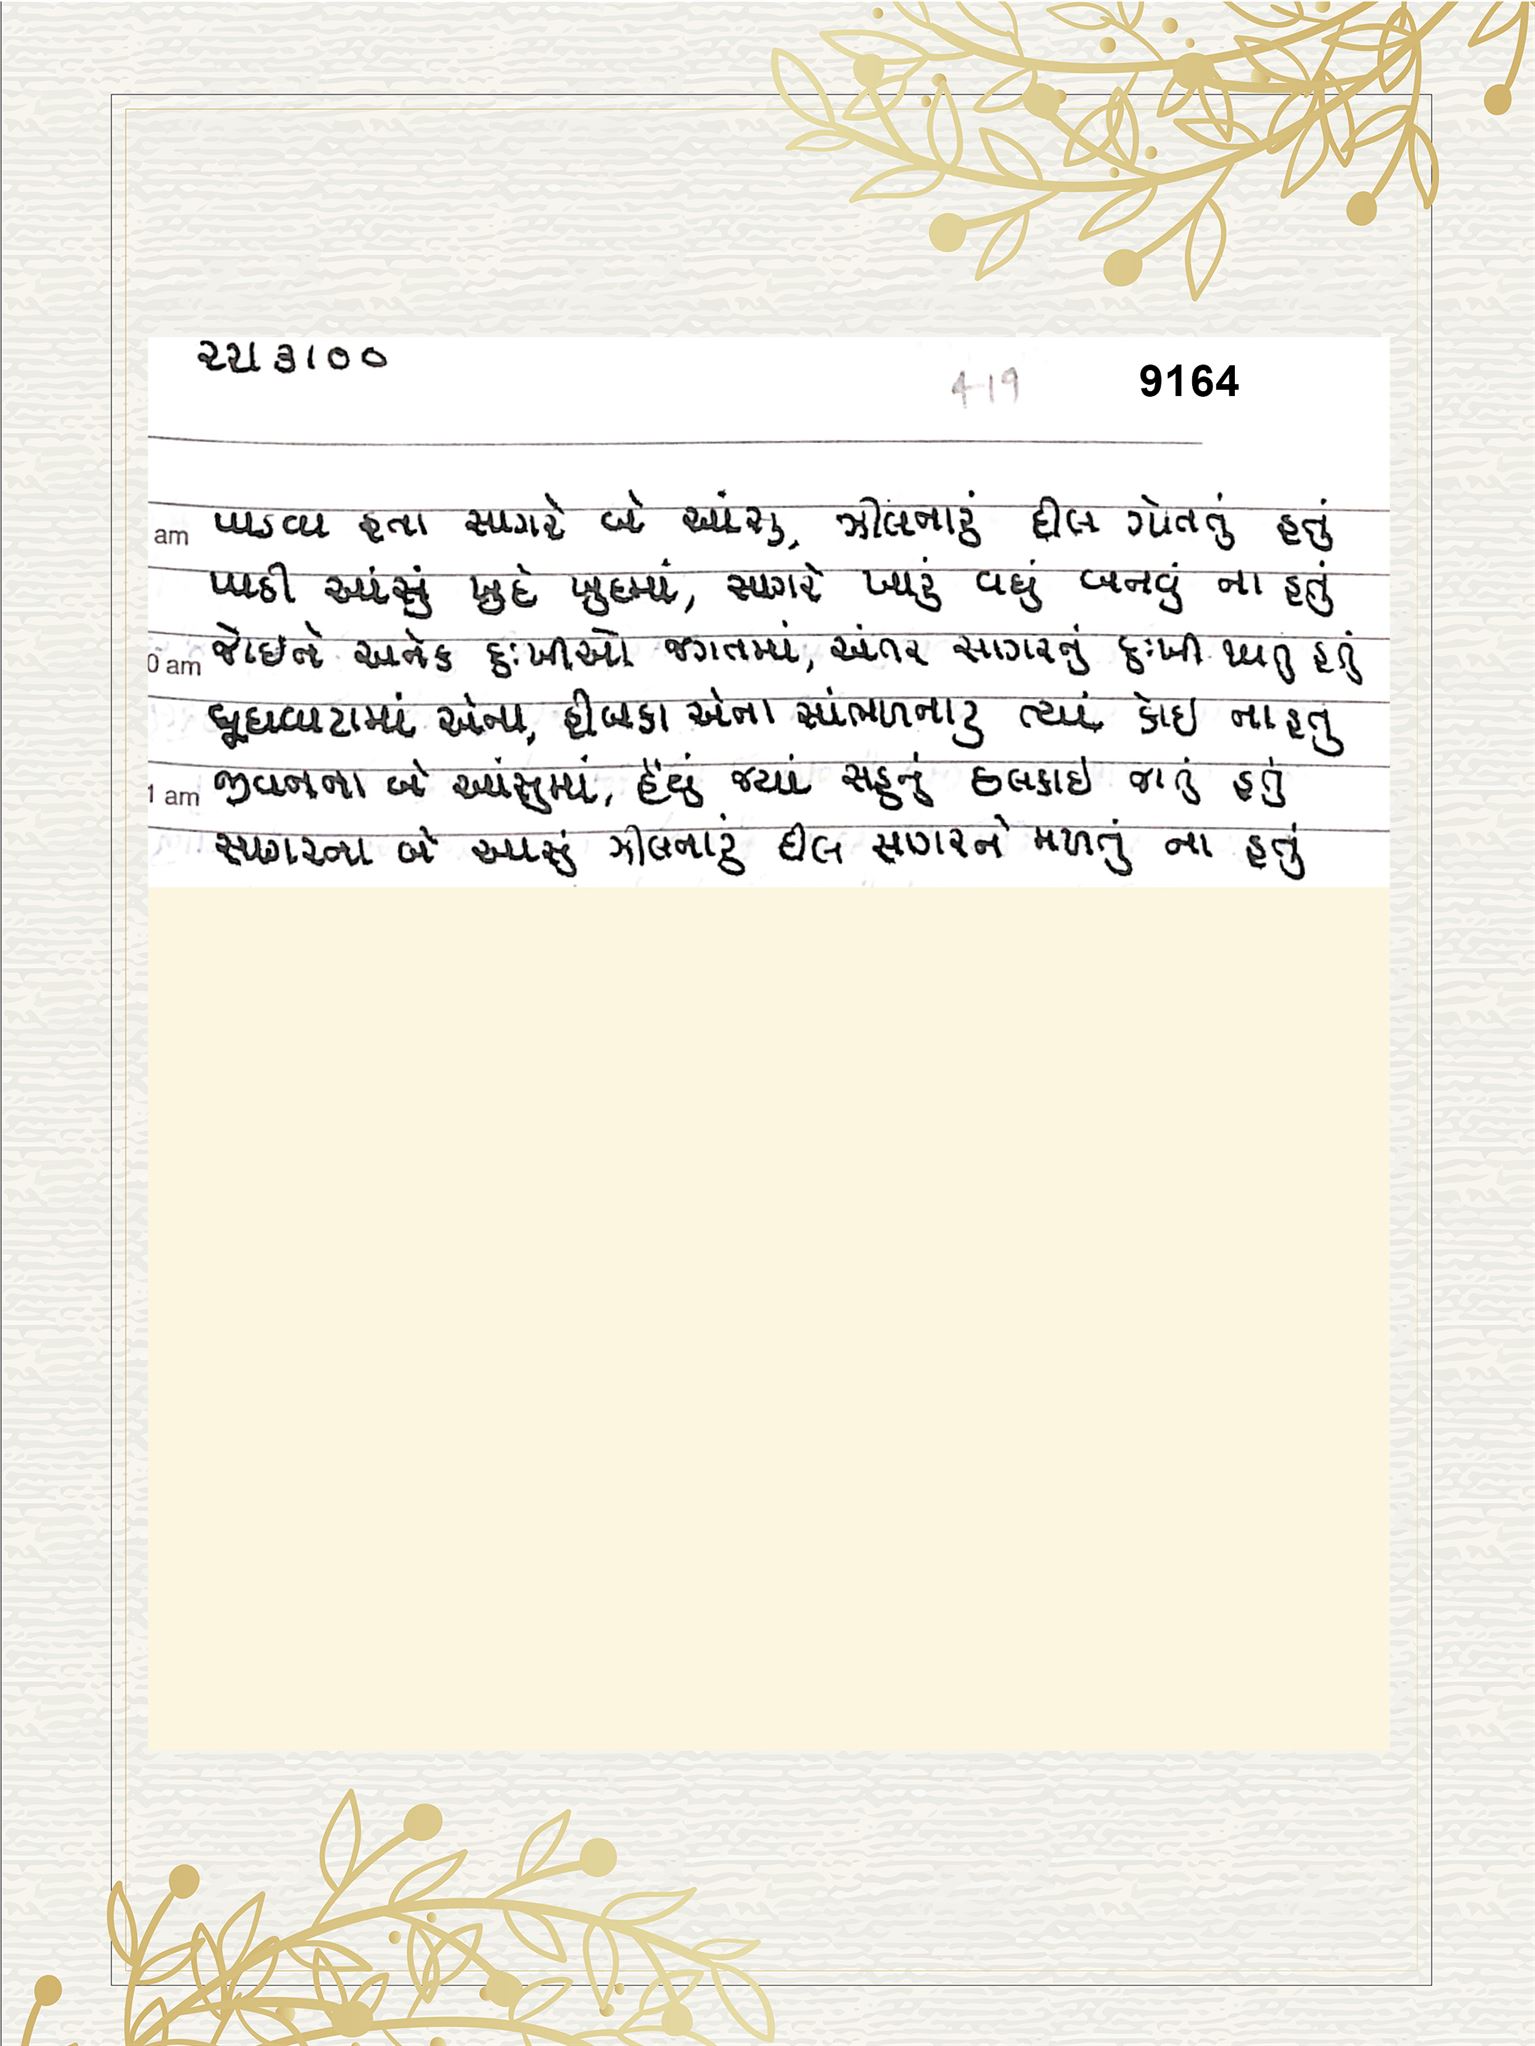 ૨૨।૩।૦૦
4-19
9164
am પાડવા હતા સાગરે બે આંસુ, ઝીલનારું દીલ ગોતતું હતું
પાઠી આંસું ખુદે ખુદમાં, સાગરે ખારું વધું બનવું ના હતું
0 am જોઇને અનેક દુઃખીઓ જગતમાં, અંતર સાગરનું દુઃખી થાતુ હતું
ઘૂઘવાટામાં એના, હીબકા એના સાંભળનારુ ત્યાં કોઇ ના હતુ
1 am જીવનના બે આંસુમાં, હૈયું જ્યાં સહુનું હલકાઇ જાતું હતું
સાગરના બે આસું ઝીલનારું દીલ સાગરને મળતું ના હતું